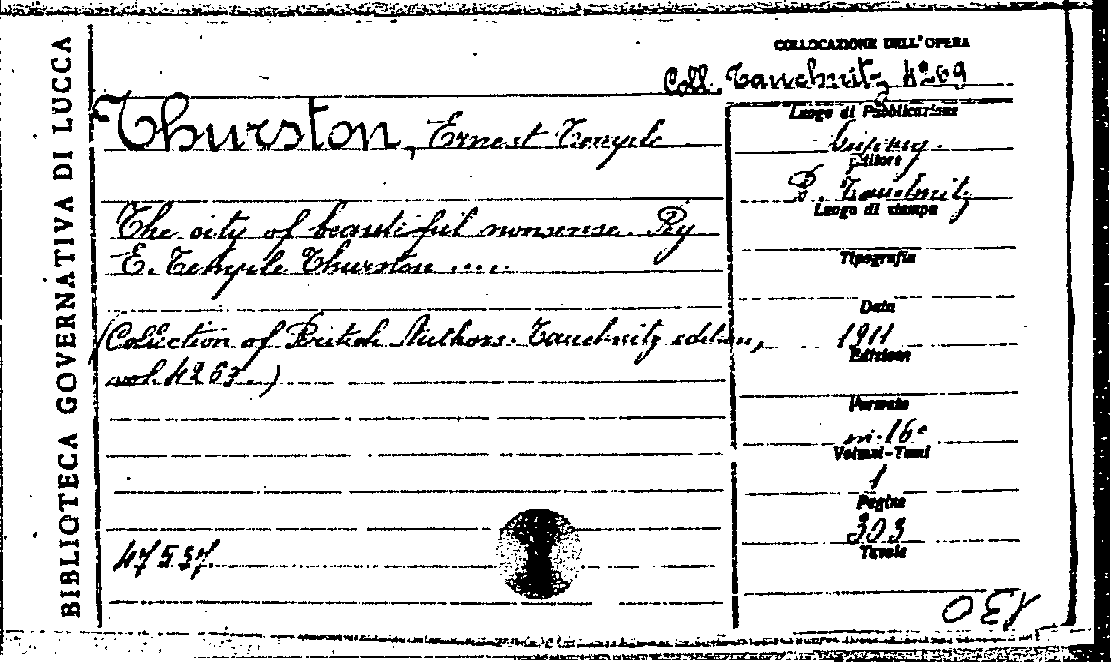 BIBLIOTECA GOVERNATIVA DI LUCCA
COLLOCAZIONE DELL'OPERA
Coll. Tauchnitz 4269
Thurston, Ernest Temple
The city of beautiful nonsense. By
E. Temple Thurston .....
(Collection of British Authors. Tauchnitz edition,
vol. 4269.)
47537
Luogo di Pubblicazione
Leipzig.
Editore
B. Tauchnitz
Luogo di stampa
Tipografia
Data
1911
Edizione
Formato
in-16°
Volumi-Tomi
1
Pagine
303
Tavole
130